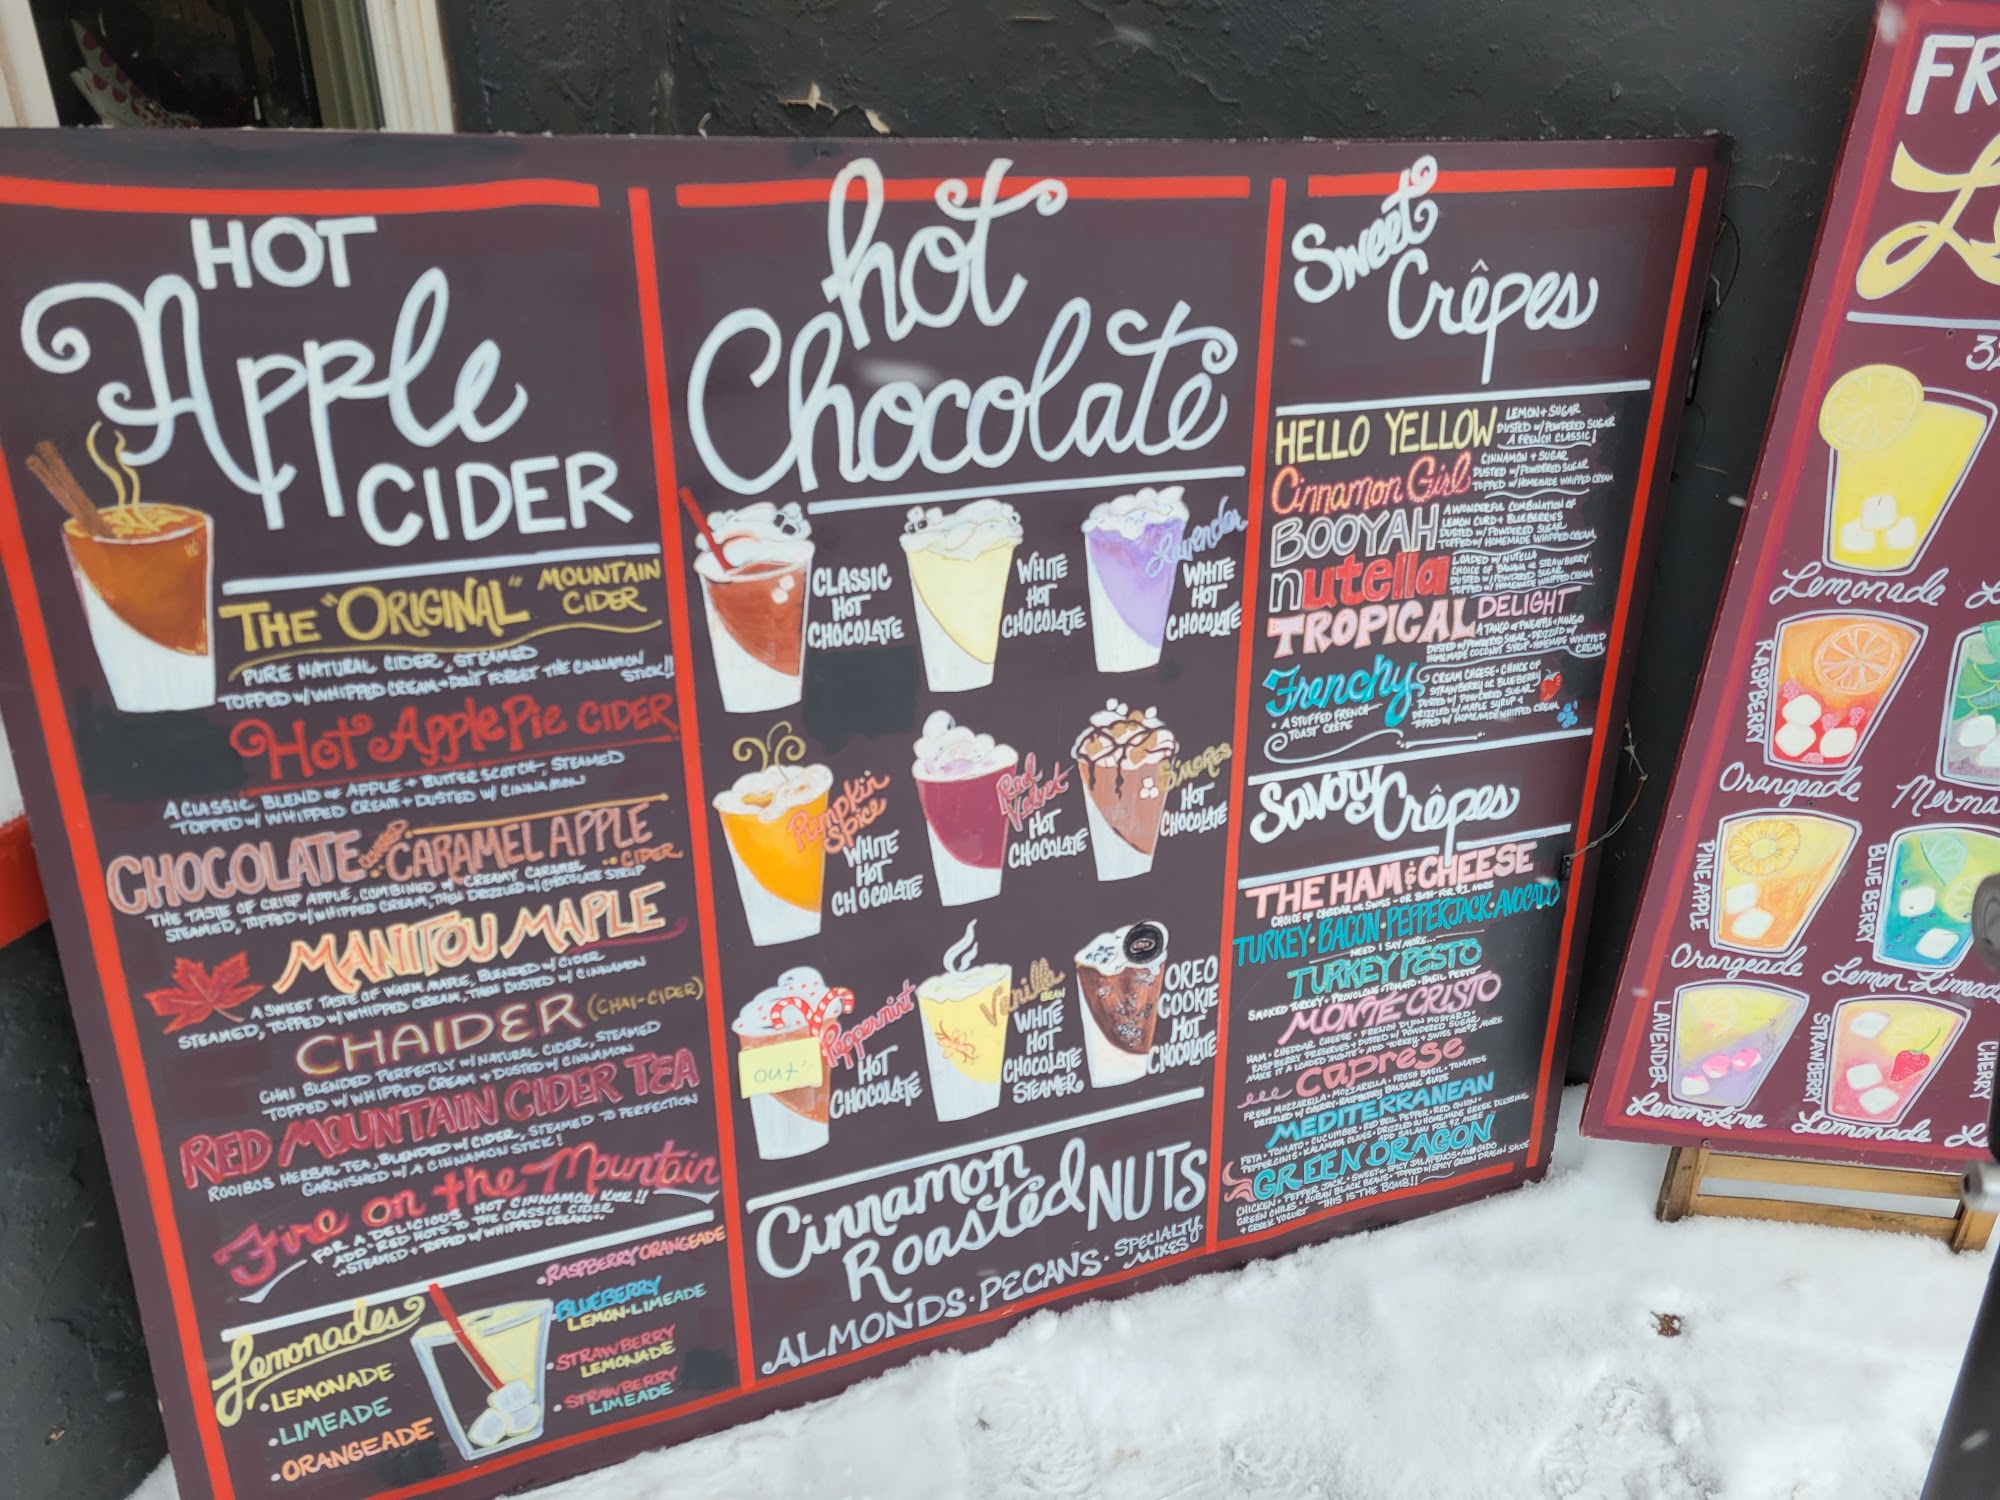 HOT
Apple
CIDER
THE "ORIGINAL" MOUNTAIN
CIDER
PURE NATURAL CIDER, STEAMED
TOPPED W/ WHIPPED CREAM + DON'T FORGET THE CINNAMON
STICK!!
Hot Apple Pie CIDER
A CLASSIC BLEND OF APPLE + BUTTERSCOTCH, STEAMED
TOPPED W/ WHIPPED CREAM + DUSTED W/ CINNAMON
CHOCOLATE CARAMEL APPLE
CIDER
THE TASTE OF CRISP APPLE, COMBINED W/ CREAMY CARAMEL
STEAMED, TOPPED W/ WHIPPED CREAM, THEN DRIZZLED W/ CHOCOLATE SYRUP
MANITOU MAPLE
A SWEET TASTE OF WARM MAPLE, BLENDED W/ CIDER
STEAMED, TOPPED W/ WHIPPED CREAM, THEN DUSTED W/ CINNAMON
CHAIDER (CHAI-CIDER)
CHAI BLENDED PERFECTLY W/ NATURAL CIDER, STEAMED
TOPPED W/ WHIPPED CREAM + DUSTED W/ CINNAMON
RED MOUNTAIN CIDER TEA
ROOIBOS HERBAL TEA, BLENDED W/ CIDER, STEAMED TO PERFECTION
GARNISHED W/ A CINNAMON STICK!
Fire on the Mountain
FOR A DELICIOUS HOT CINNAMON KICK!!
ADD RED HOTS TO THE CLASSIC CIDER
STEAMED + TOPPED W/ WHIPPED CREAM
Lemonades
• LEMONADE
• LIMEADE
• ORANGEADE
• RASPBERRY ORANGEADE
• BLUEBERRY
LEMON-LIMEADE
• STRAWBERRY
LEMONADE
• STRAWBERRY
LIMEADE
hot
Chocolate
CLASSIC
HOT
CHOCOLATE
WHITE
HOT
CHOCOLATE
Lavender
WHITE
HOT
CHOCOLATE
Pumpkin
Spice
WHITE
HOT
CHOCOLATE
Red
Velvet
HOT
CHOCOLATE
S'MORES
HOT
CHOCOLATE
out
Peppermint
HOT
CHOCOLATE
Vanilla
BEAN
WHITE
HOT
CHOCOLATE
STEAMER
OREO
COOKIE
HOT
CHOCOLATE
Cinnamon
Roasted NUTS
ALMONDS • PECANS • SPECIALTY
MIXES
Sweet
Crêpes
HELLO YELLOW
LEMON + SUGAR
DUSTED W/ POWDERED SUGAR
A FRENCH CLASSIC!
Cinnamon Girl
CINNAMON + SUGAR
DUSTED W/ POWDERED SUGAR
TOPPED W/ HOMEMADE WHIPPED CREAM
BOOYAH
A WONDERFUL COMBINATION OF
LEMON CURD + BLUEBERRIES
DUSTED W/ POWDERED SUGAR
TOPPED W/ HOMEMADE WHIPPED CREAM
nutella
LOADED W/ NUTELLA
CHOICE OF BANANA OR STRAWBERRY
DUSTED W/ POWDERED SUGAR
TOPPED W/ HOMEMADE WHIPPED CREAM
TROPICAL DELIGHT
A TANGO OF PINEAPPLE + MANGO
DUSTED W/ POWDERED SUGAR • DRIZZLED W/
HOMEMADE COCONUT SYRUP • HOMEMADE WHIPPED
CREAM
Frenchy
• A STUFFED FRENCH
TOAST CRÊPE
CREAM CHEESE • CHOICE OF
STRAWBERRY OR BLUEBERRY
DUSTED W/ POWDERED SUGAR
DRIZZLED W/ MAPLE SYRUP +
TOPPED W/ HOMEMADE WHIPPED CREAM
Savory Crêpes
THE HAM & CHEESE
CHOICE OF CHEDDAR OR SWISS - OR BOTH FOR $1 MORE
TURKEY • BACON • PEPPERJACK • AVOCADO
NEED I SAY MORE...
TURKEY PESTO
SMOKED TURKEY • PROVOLONE • TOMATO • BASIL PESTO
MONTE CRISTO
HAM • CHEDDAR CHEESE • FRENCH DIJON MUSTARD •
RASPBERRY PRESERVES • DUSTED W/ POWDERED SUGAR
MAKE IT A LOADED 'MONTE' + ADD TURKEY + SWISS FOR $2 MORE
caprese
FRESH MOZZARELLA • FRESH BASIL • TOMATOES
DRIZZLED W/ CHERRY-RASPBERRY BALSAMIC GLAZE
MEDITERRANEAN
FETA • TOMATO • CUCUMBER • RED BELL PEPPER • RED ONION •
PEPPERCINIS • KALAMATA OLIVES • DRIZZLED IN HOMEMADE GREEK DRESSING
ADD SALAMI FOR $2 MORE
GREEN DRAGON
CHICKEN • PEPPER JACK • SWEET + SPICY JALAPENOS • AVOCADO
GREEN CHILES • CUBAN BLACK BEANS • TOPPED W/ SPICY GREEN DRAGON SAUCE
+ GREEK YOGURT THIS IS THE BOMB!!
FR
32
Lemonade
RASPBERRY
Orangeade
PINEAPPLE
Orangeade
BLUEBERRY
Lemon-Limeade
LAVENDER
Lemon-Lime
STRAWBERRY
Lemonade
CHERRY